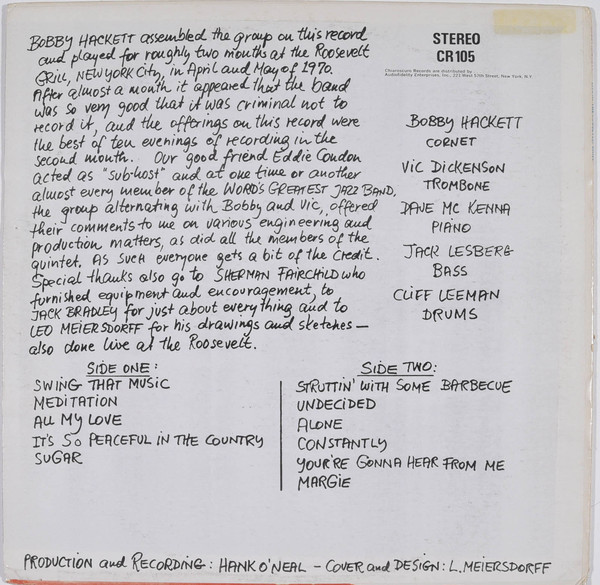 BOBBY HACKETT assembled the group on this record
and played for roughly two months at the Roosevelt
GRILL, NEW YORK City, in April and May of 1970.
After almost a month it appeared that the band
was so very good that it was criminal not to
record it, and the offerings on this record were
the best of ten evenings of recording in the
second month. Our good friend Eddie Condon
acted as "sub-host" and at one time or another
almost every member of the WORD'S GREATEST JAZZ BAND,
the group alternating with Bobby and Vic, offered
their comments to me on various engineering and
production matters, as did all the members of the
quintet. As such everyone gets a bit of the credit.
Special thanks also go to SHERMAN FAIRCHILD who
furnished equipment and encouragement, to
JACK BRADLEY for just about everything and to
LEO MEIERSDORFF for his drawings and sketches —
also done live at the Roosevelt.
STEREO
CR 105
Chiaroscuro Records are distributed by
Audiofidelity Enterprises, Inc., 221 West 57th Street, New York, N.Y.
BOBBY HACKETT
CORNET
VIC DICKENSON
TROMBONE
DAVE MC KENNA
PIANO
JACK LESBERG
BASS
CLIFF LEEMAN
DRUMS
SIDE ONE:
SWING THAT MUSIC
MEDITATION
ALL MY LOVE
IT'S SO PEACEFUL IN THE COUNTRY
SUGAR
SIDE TWO:
STRUTTIN' WITH SOME BARBECUE
UNDECIDED
ALONE
CONSTANTLY
YOUR'RE GONNA HEAR FROM ME
MARGIE
PRODUCTION and RECORDING: HANK O'NEAL – COVER and DESIGN: L. MEIERSDORFF